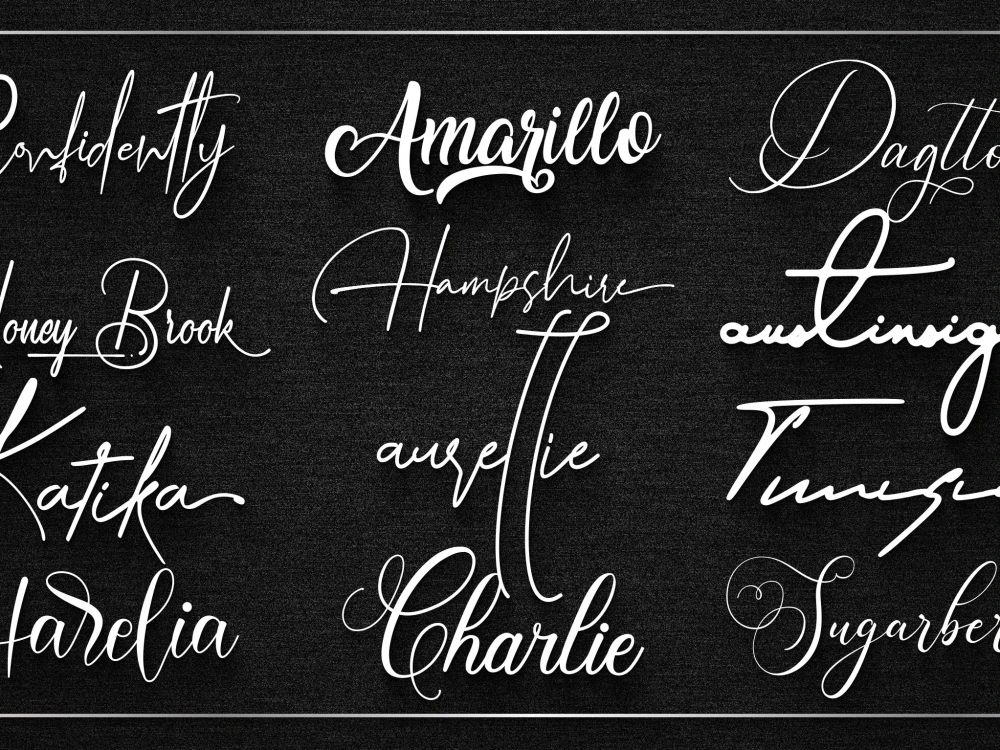 Confidently
Amarillo
Dagtto
Honey Brook
Hampshire
austinsig
Katika
aurellie
Tunis
Harelia
Charlie
Sugarber